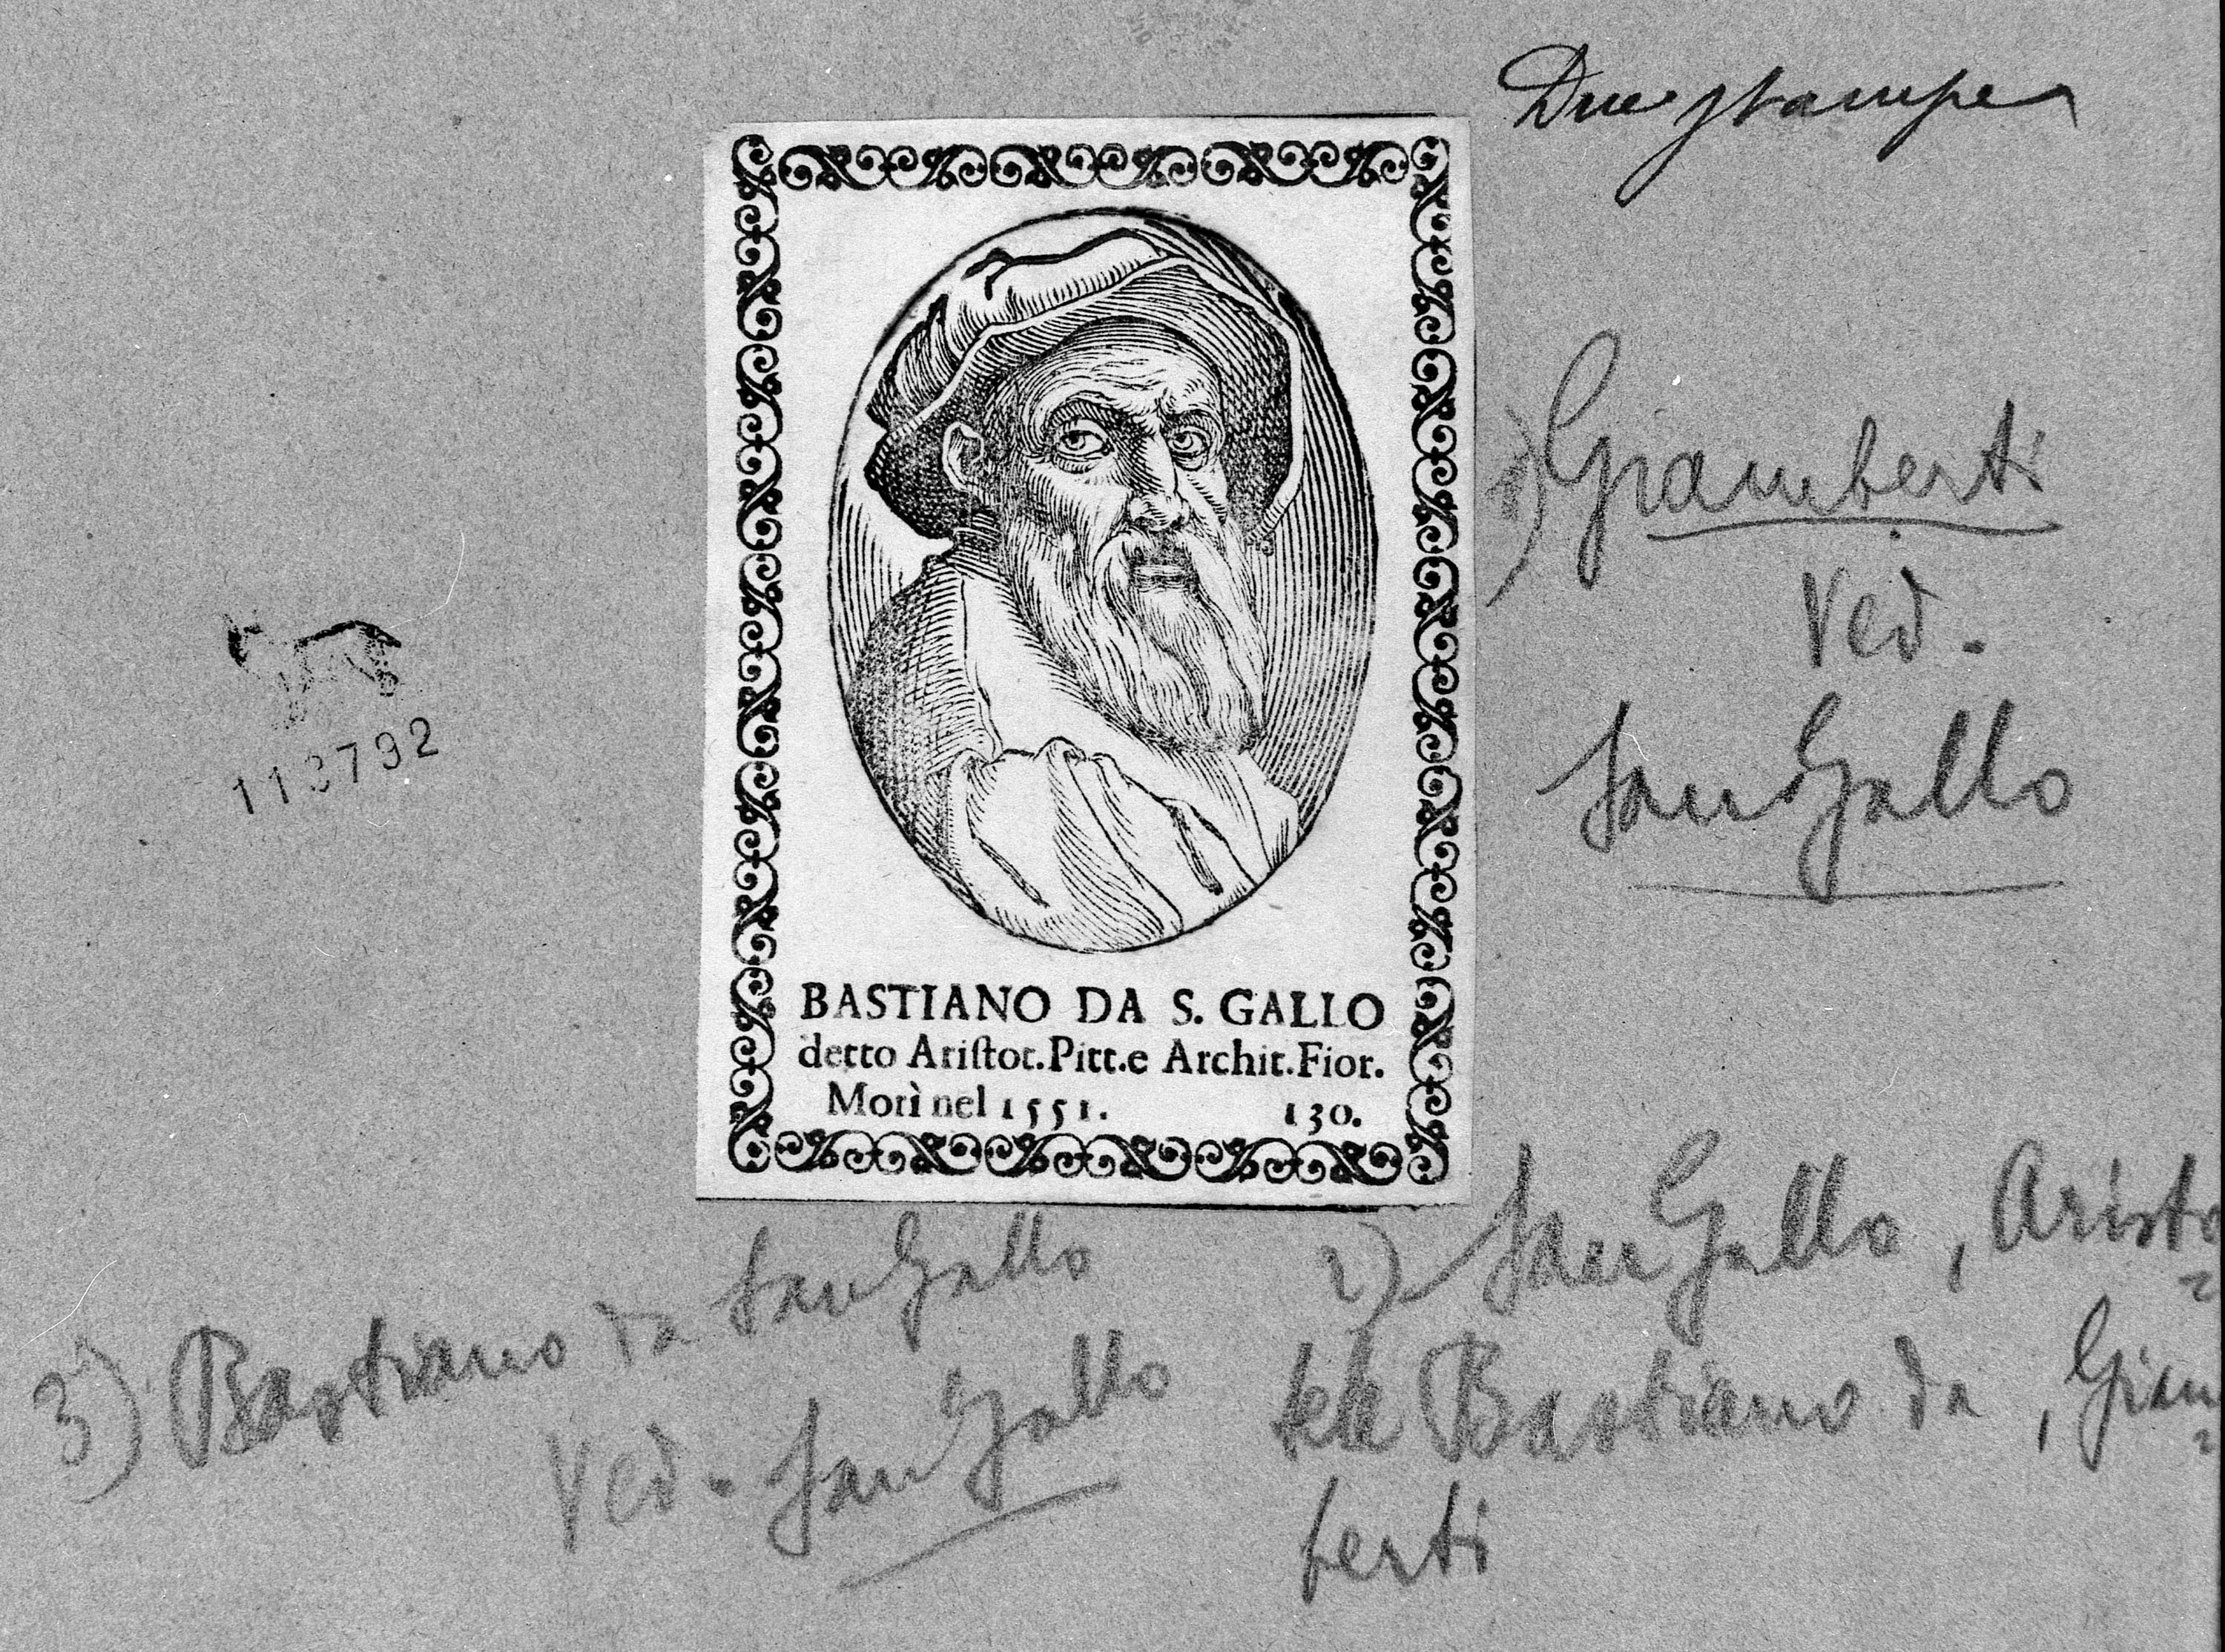 Due stampe
1) Giamberti
Ved.
San Gallo
113792
BASTIANO DA S. GALLO
detto Ariſtot. Pitt. e Archit. Fior.
Morì nel 1551. 130.
2) San Gallo, Aristo
tele Bastiano da, Giam
berti
3) Bastiano da San Gallo
Ved. San Gallo